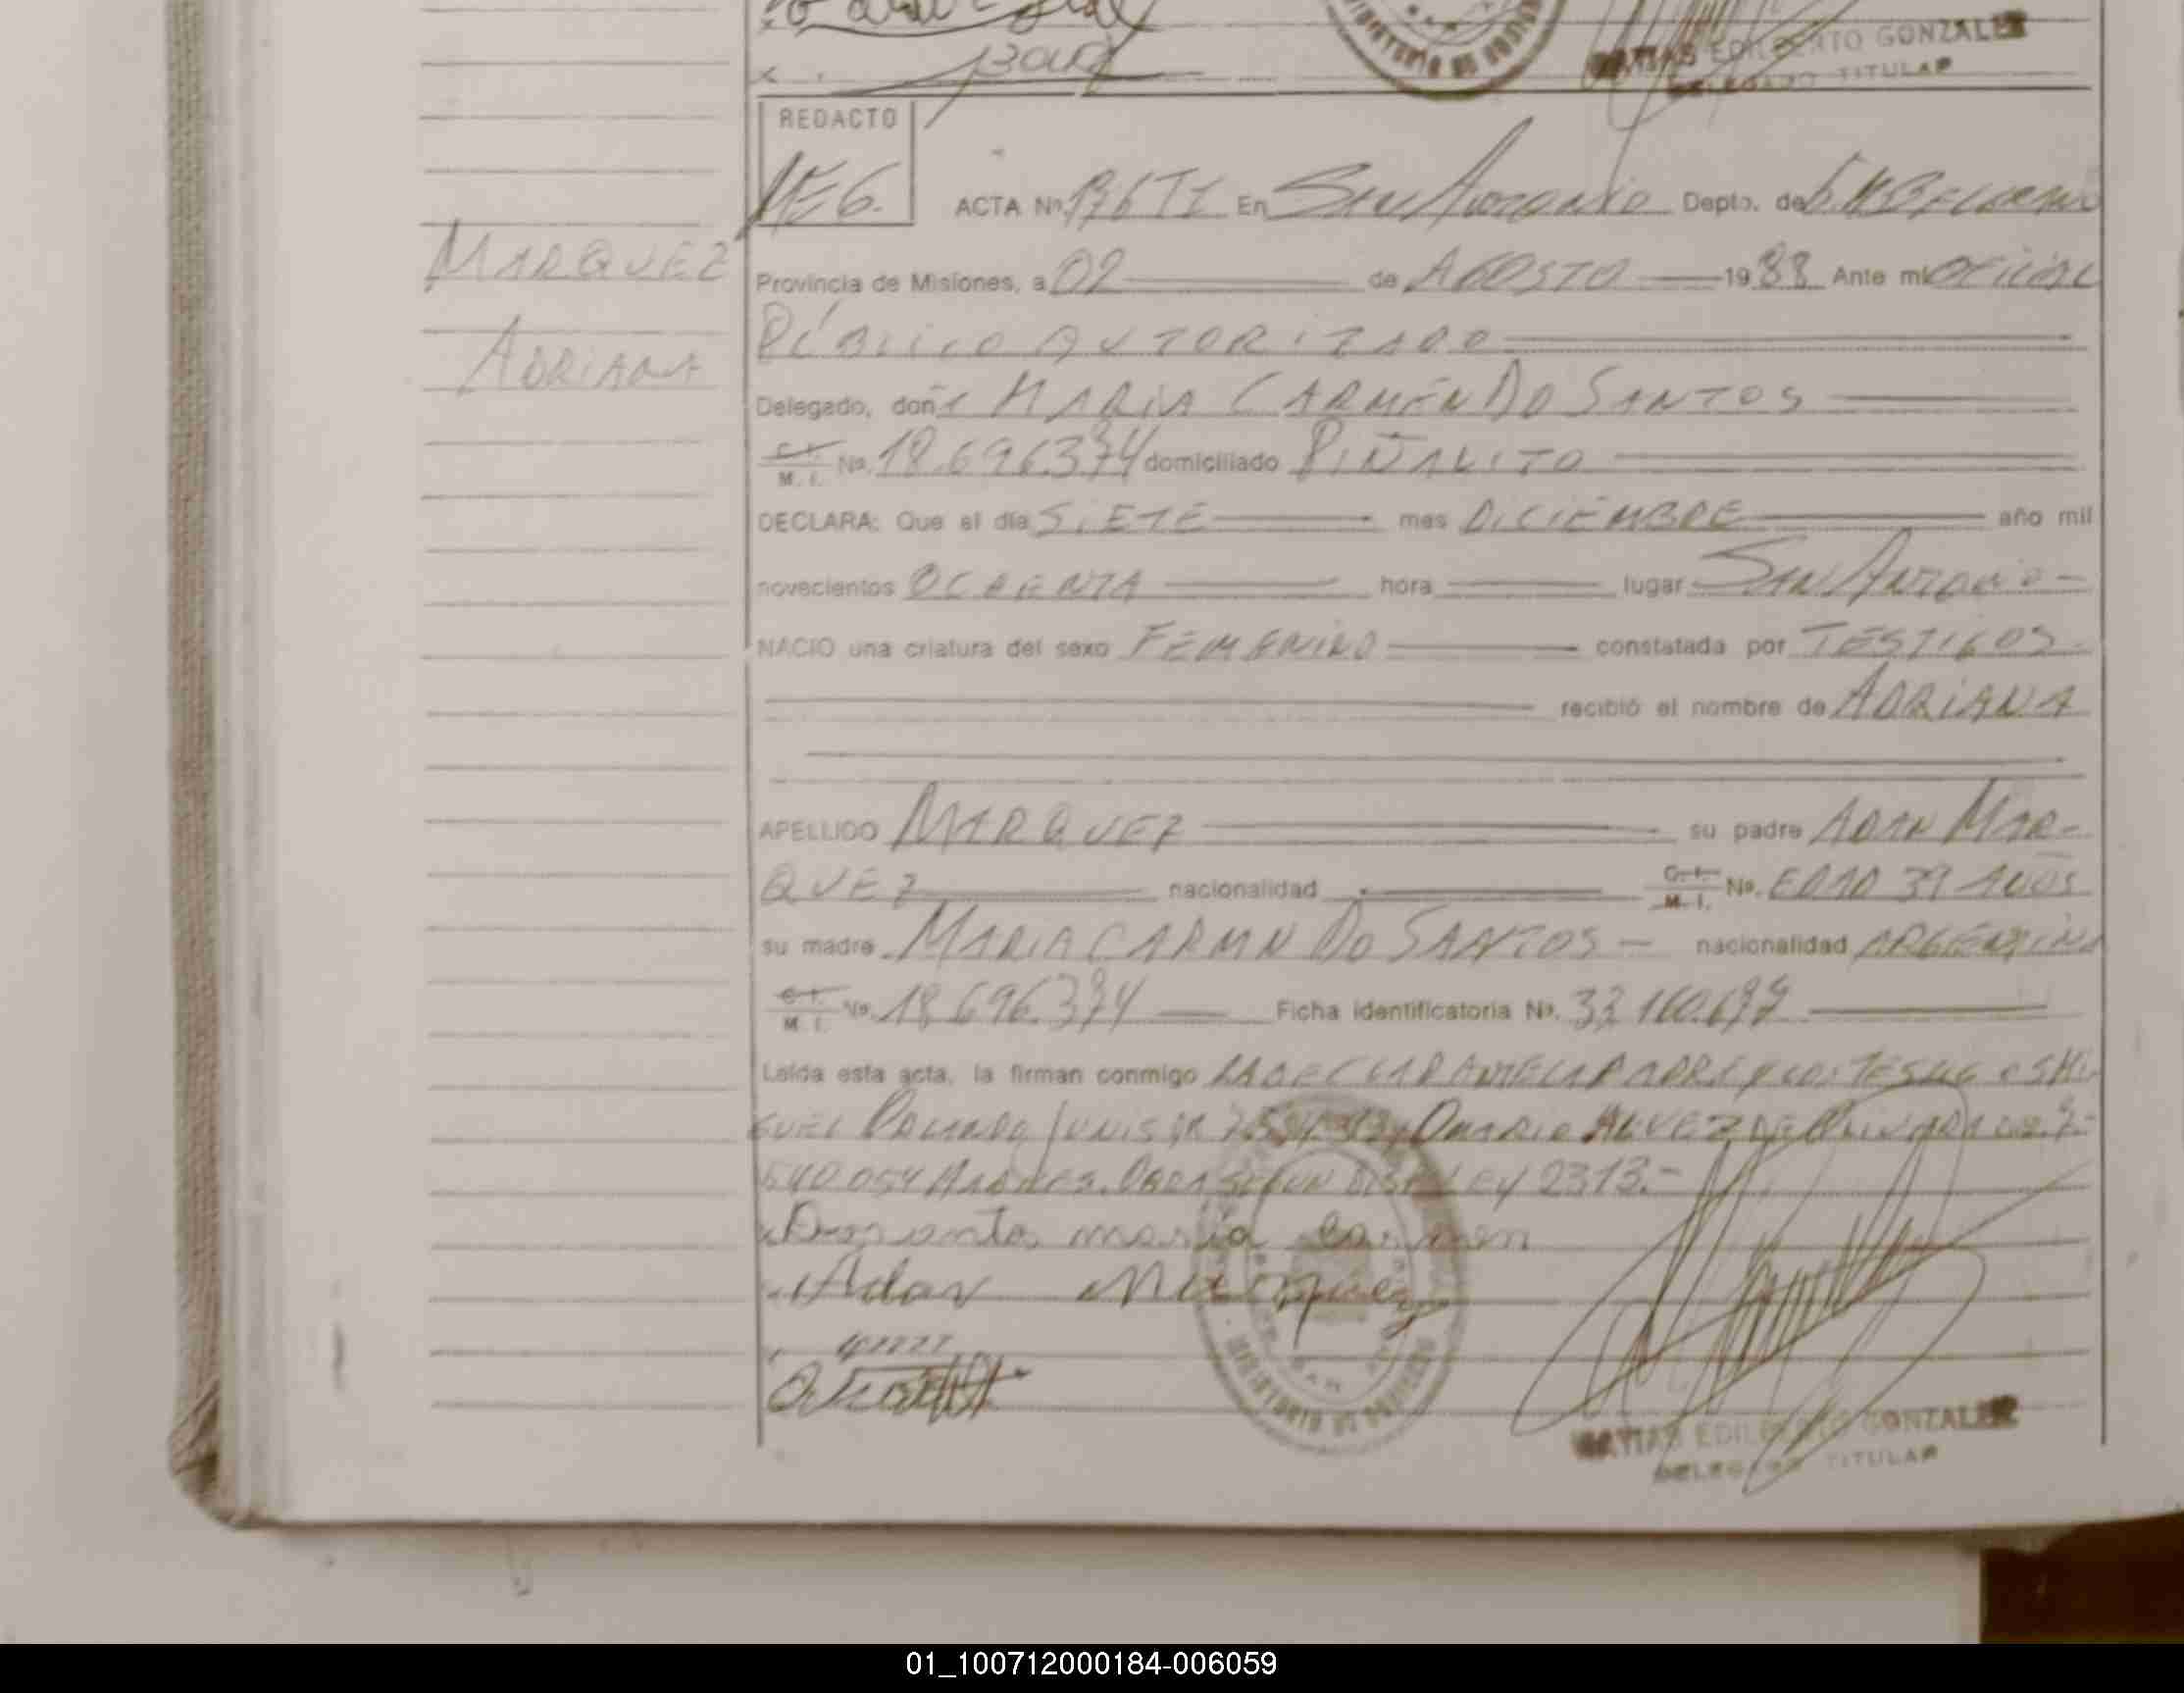 MATIAS EDILBERTO GONZALEZ
DELEGADO TITULAR
REDACTO
ACTA Nº En San Antonio Depto. de G.M. BELGRANO
MARQUEZ
ADRIANA
Provincia de Misiones, a 02 de AGOSTO 1988 Ante mi OFICIAL
PÚBLICO AUTORIZADO
Delegado, doña MARIA CARMEN DO SANTOS
C.I. M.I. Nº. 18.696.374 domiciliado PIÑALITO
DECLARA: Que el día SIETE mes DICIEMBRE año mil
novecientos OCHENTA hora lugar SAN ANTONIO
NACIO una criatura del sexo FEMENINO constatada por TESTIGOS
recibió el nombre de ADRIANA
APELLIDO MARQUEZ su padre ADAN MAR-
QUEZ nacionalidad C.I. M.I. Nº. EDAD 39 AÑOS
su madre MARIA CARMN DO SANTOS - nacionalidad ARGENTINA
C.I. M.I. Nº. 18.696.374 Ficha identificatoria Nº. 33.160.
Leída esta acta, la firman conmigo LA DECLARANTE EL PADRE Y LOS TESTIGOS MI
GUEL
540.054 SEGUN LEY 2313.-
maria carmen
Adan Marquez
MATIAS EDILBERTO GONZALEZ
DELEGADO TITULAR
01_100712000184-006059